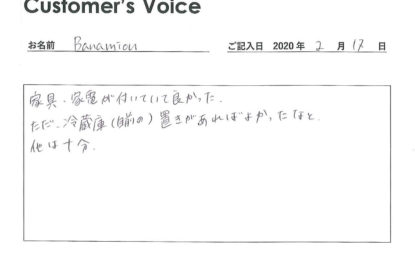 Customer's Voice
お名前 Banamion ご記入日 2020 年 2 月 17 日
家具・家電が付いていて良かった.
ただ、冷蔵庫(自前の)置きがあればよかったなと.
他は十分.